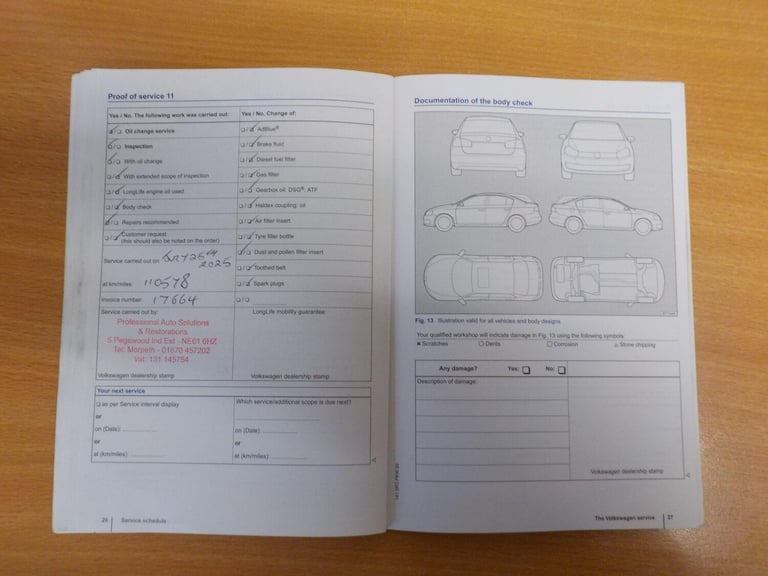 Proof of service 11
Yes / No. The following work was carried out:
Oil change service
Inspection
With oil change
With extended scope of inspection
LongLife engine oil used
Body check
Repairs recommended
Customer request
(this should also be noted on the order)
Service carried out on:
2025
at km/miles: 110578
Invoice number: 17664
Service carried out by:
Professional Auto Solutions
& Restorations
5 Pegswood Ind Est - NE61 6HZ
Tel: Morpeth - 01670 457202
Vat: 131 145754
Volkswagen dealership stamp
Yes / No. Change of:
AdBlue®
Brake fluid
Diesel fuel filter
Gas filter
Gearbox oil: DSG®, ATF
Haldex coupling: oil
Air filter insert
Tyre filler bottle
Dust and pollen filter insert
Toothed belt
Spark plugs
LongLife mobility guarantee:
Volkswagen dealership stamp
Your next service
as per Service interval display
or
on (Date):
or
at (km/miles):
Which service/additional scope is due next?
on (Date):
or
at (km/miles):
26 Service schedule
Documentation of the body check
Fig. 13 Illustration valid for all vehicles and body designs.
Your qualified workshop will indicate damage in Fig. 13 using the following symbols:
Scratches Dents Corrosion Stone chipping
Any damage? Yes: No:
Description of damage:
Volkswagen dealership stamp
The Volkswagen service 27